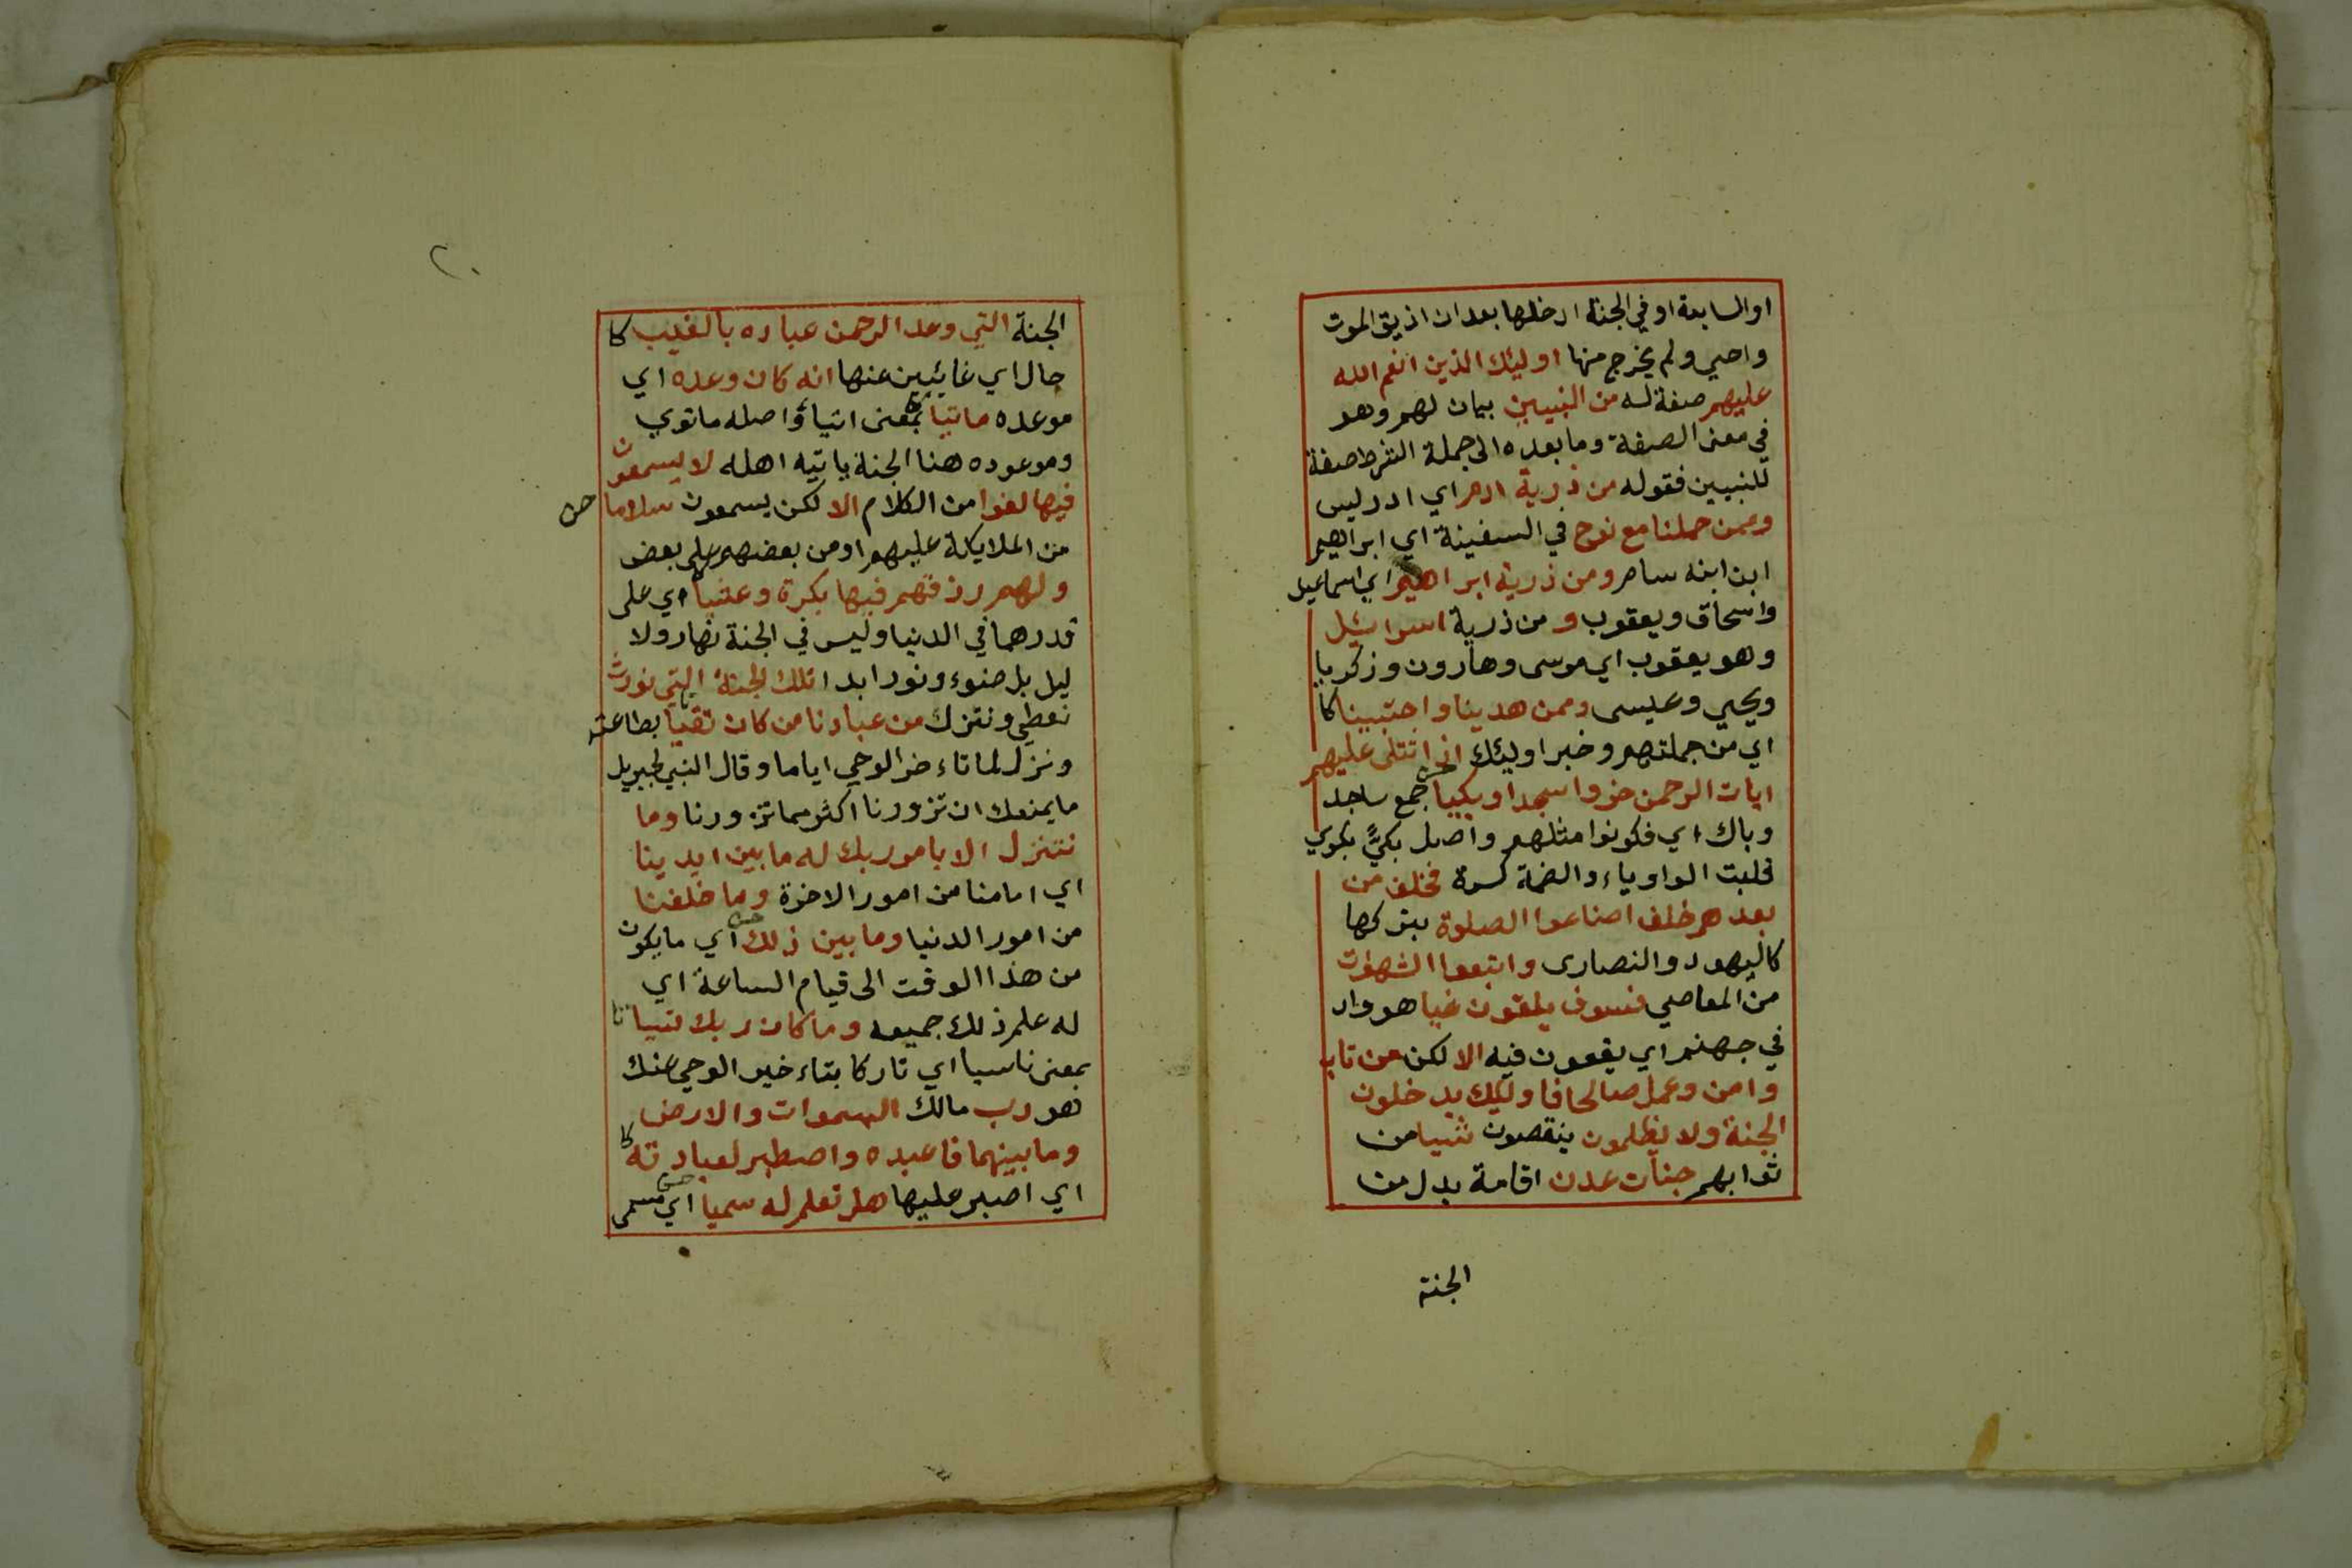 او السابعة او في الجنة ادخلها بعد ان اذيق الموت
واحيي ولم يخرج منها اولئك الذين انعم الله
عليهم صفة له من النبيين بيان لهم وهو
في معنى الصفة وما بعده الى جملة الشرط صفة
للنبيين فقوله من ذرية ادم اي ادريس
وممن حملنا مع نوح في السفينة اي ابراهيم
ابن ابنه سام ومن ذرية ابراهيم اي اسماعيل
واسحاق ويعقوب و من ذرية اسرائيل
وهو يعقوب اي موسى وهارون وزكريا
ويحيي وعيسى وممن هدينا واجتبينا كا
اي من جملتهم وخبر اولئك اذا تتلى عليهم
ايات الرحمن خروا سجدا وبكيا جمع ساجد
وباك اي فكونوا مثلهم واصل بكيٍّ بكوي
قلبت الواو ياء والضمة كسرة فخلف من
بعدهم خلف اضاعوا الصلوة بتركها
كاليهود والنصارى واتبعوا الشهوات
من المعاصي فسوف يلقون غيا هو واد
في جهنم اي يقعون فيه الا لكن من تاب
وامن وعمل صالحا فاولئك يدخلون
الجنة ولا يظلمون ينقصون شيا من
ثوابهم جنات عدن اقامة بدل من
الجنة
٢٠
الجنة التي وعد الرحمن عباده بالغيب كا
حال اي غائبين عنها انه كان وعده اي
موعده ماتيا بمعنى اتيا واصله ماتوي
وموعوده هنا الجنة ياتيه اهله لا يسمعون
فيها لغوا من الكلام الا لكن يسمعون سلاما حن
من الملايكة عليهم او من بعضهم على بعض
ولهم رزقهم فيها بكرة وعشيا اي على
قدرهما في الدنيا وليس في الجنة نهار ولا
ليل بل ضوء ونور ابدا تلك الجنة التي نورث
نعطي وننزل من عبادنا من كان تقيا بطاعته
ونزل لما تاءخر الوحي اياما وقال النبي لجبريل
ما يمنعك ان تزورنا اكثر مما تزورنا وما
نتنزل الا بامر ربك له ما بين ايدينا
اي امامنا من امور الاخرة وما خلفنا
من امور الدنيا وما بين ذلك اي ما يكون
من هذا الوقت الى قيام الساعة اي
له علم ذلك جميعه وما كان ربك نسيا
بمعنى ناسيا اي تاركا بتاءخير الوحي عنك
هو رب مالك السموات والارض
وما بينهما فاعبده واصطبر لعبادته كا
اي اصبر عليها هل تعلم له سميا اي مسمى